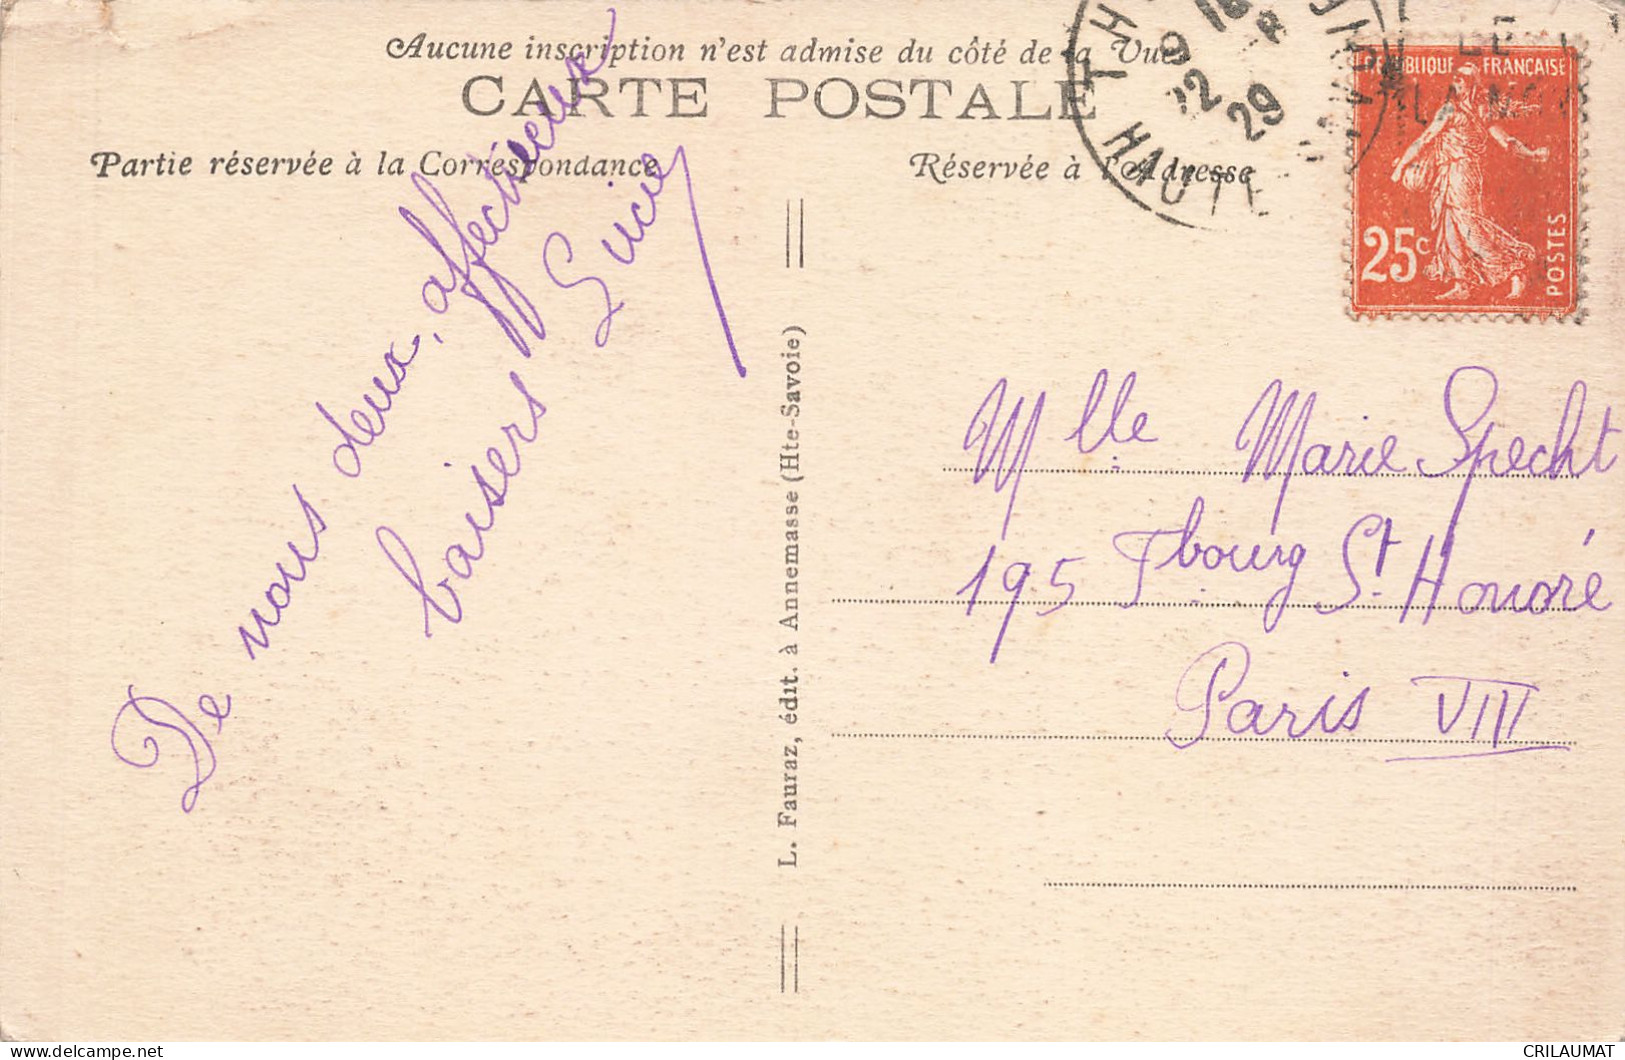 Aucune inscription n'est admise du côté de la Vue
CARTE POSTALE
Partie réservée à la Correspondance
Réservée à l'Adresse
HAUTE
29
RÉPUBLIQUE FRANÇAISE
25c
POSTES
De nous deux, affectueux
baisers Lucie
L. Fauraz, édit. à Annemasse (Hte-Savoie)
Mlle Marie Specht
195 Fbourg St Honoré
Paris VIII
CRILAUMAT